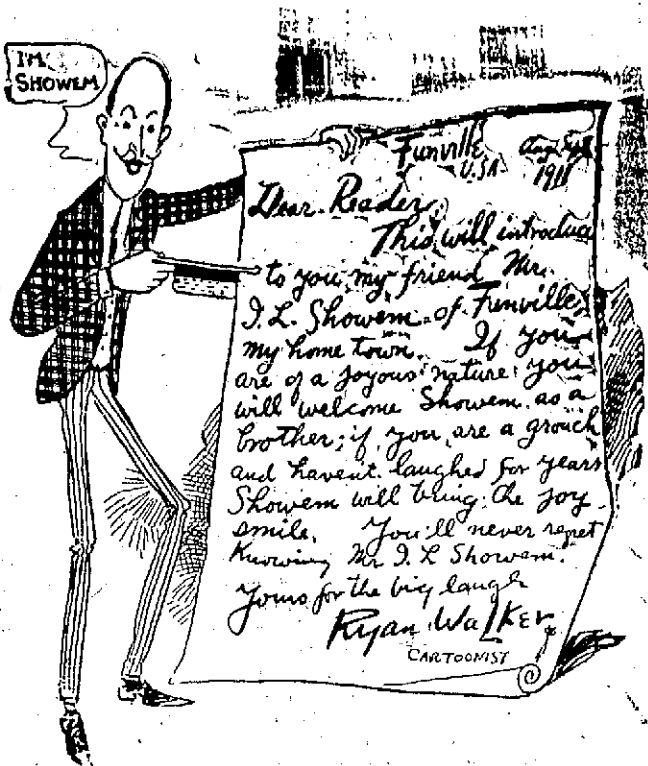 I'M
SHOWEM
Funville
U.S.A.
1911
Dear Reader,
This will introduce
to you my friend Mr.
I. L. Showem of Funville,
my home town. If you
are of a joyous nature you
will welcome Showem as a
brother; if you are a grouch
and havent laughed for years
Showem will bring the joy
smile. You'll never regret
Knowing Mr I. L Showem.
Yours for the big laugh
Ryan Walker
CARTOONIST